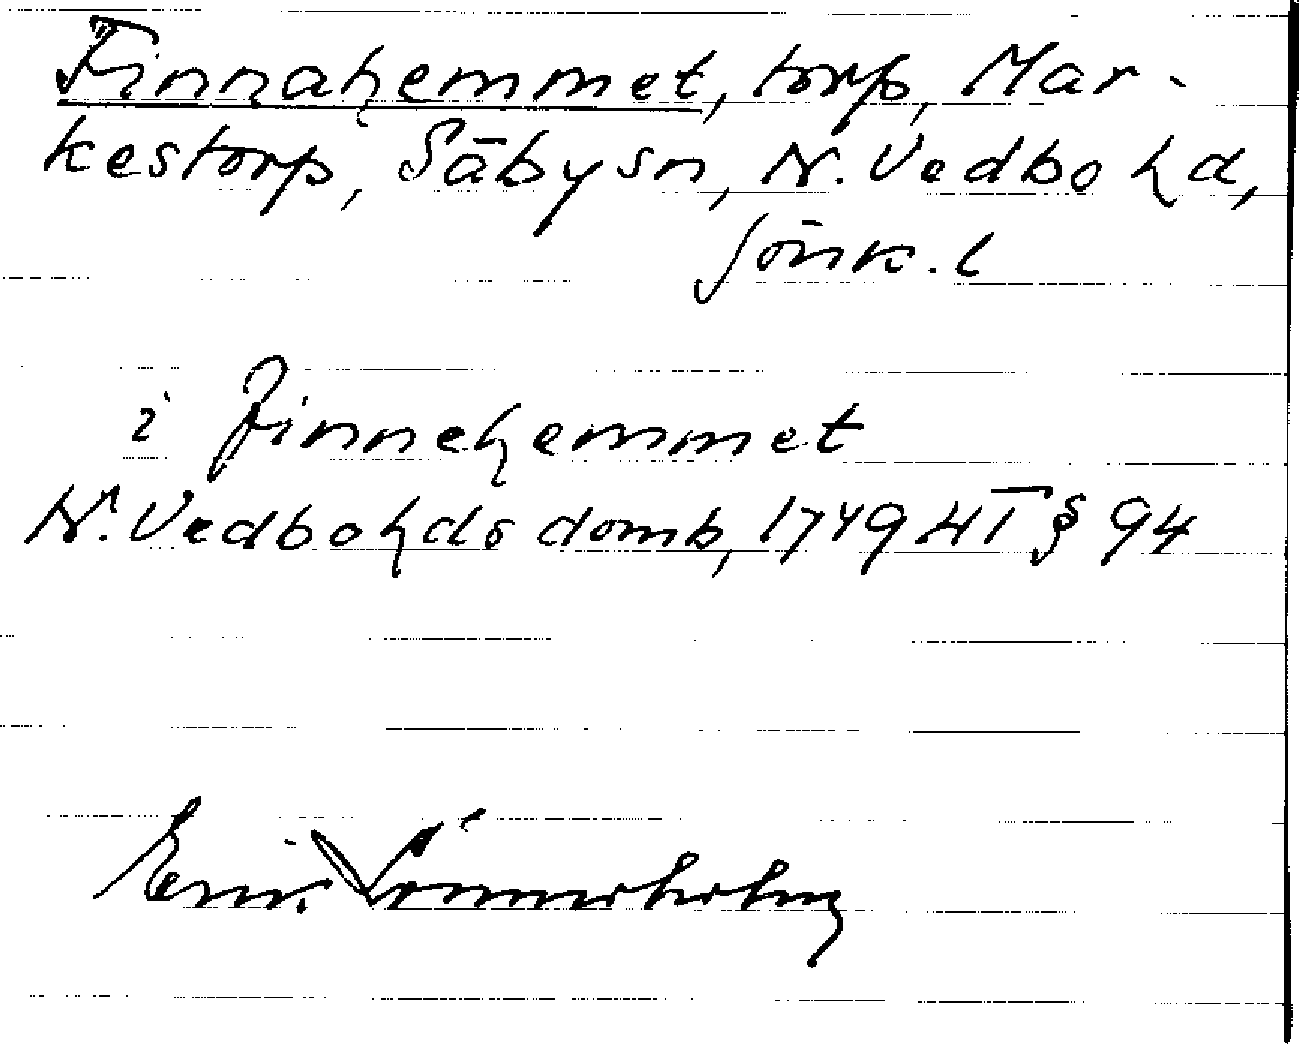 Finnahemmet, torp, Mar-
kestorp, Säby sn, N. Vedbo hd,
Jönk. l
i Finnehemmet
N. Vedbohds domb, 1749 HT § 94